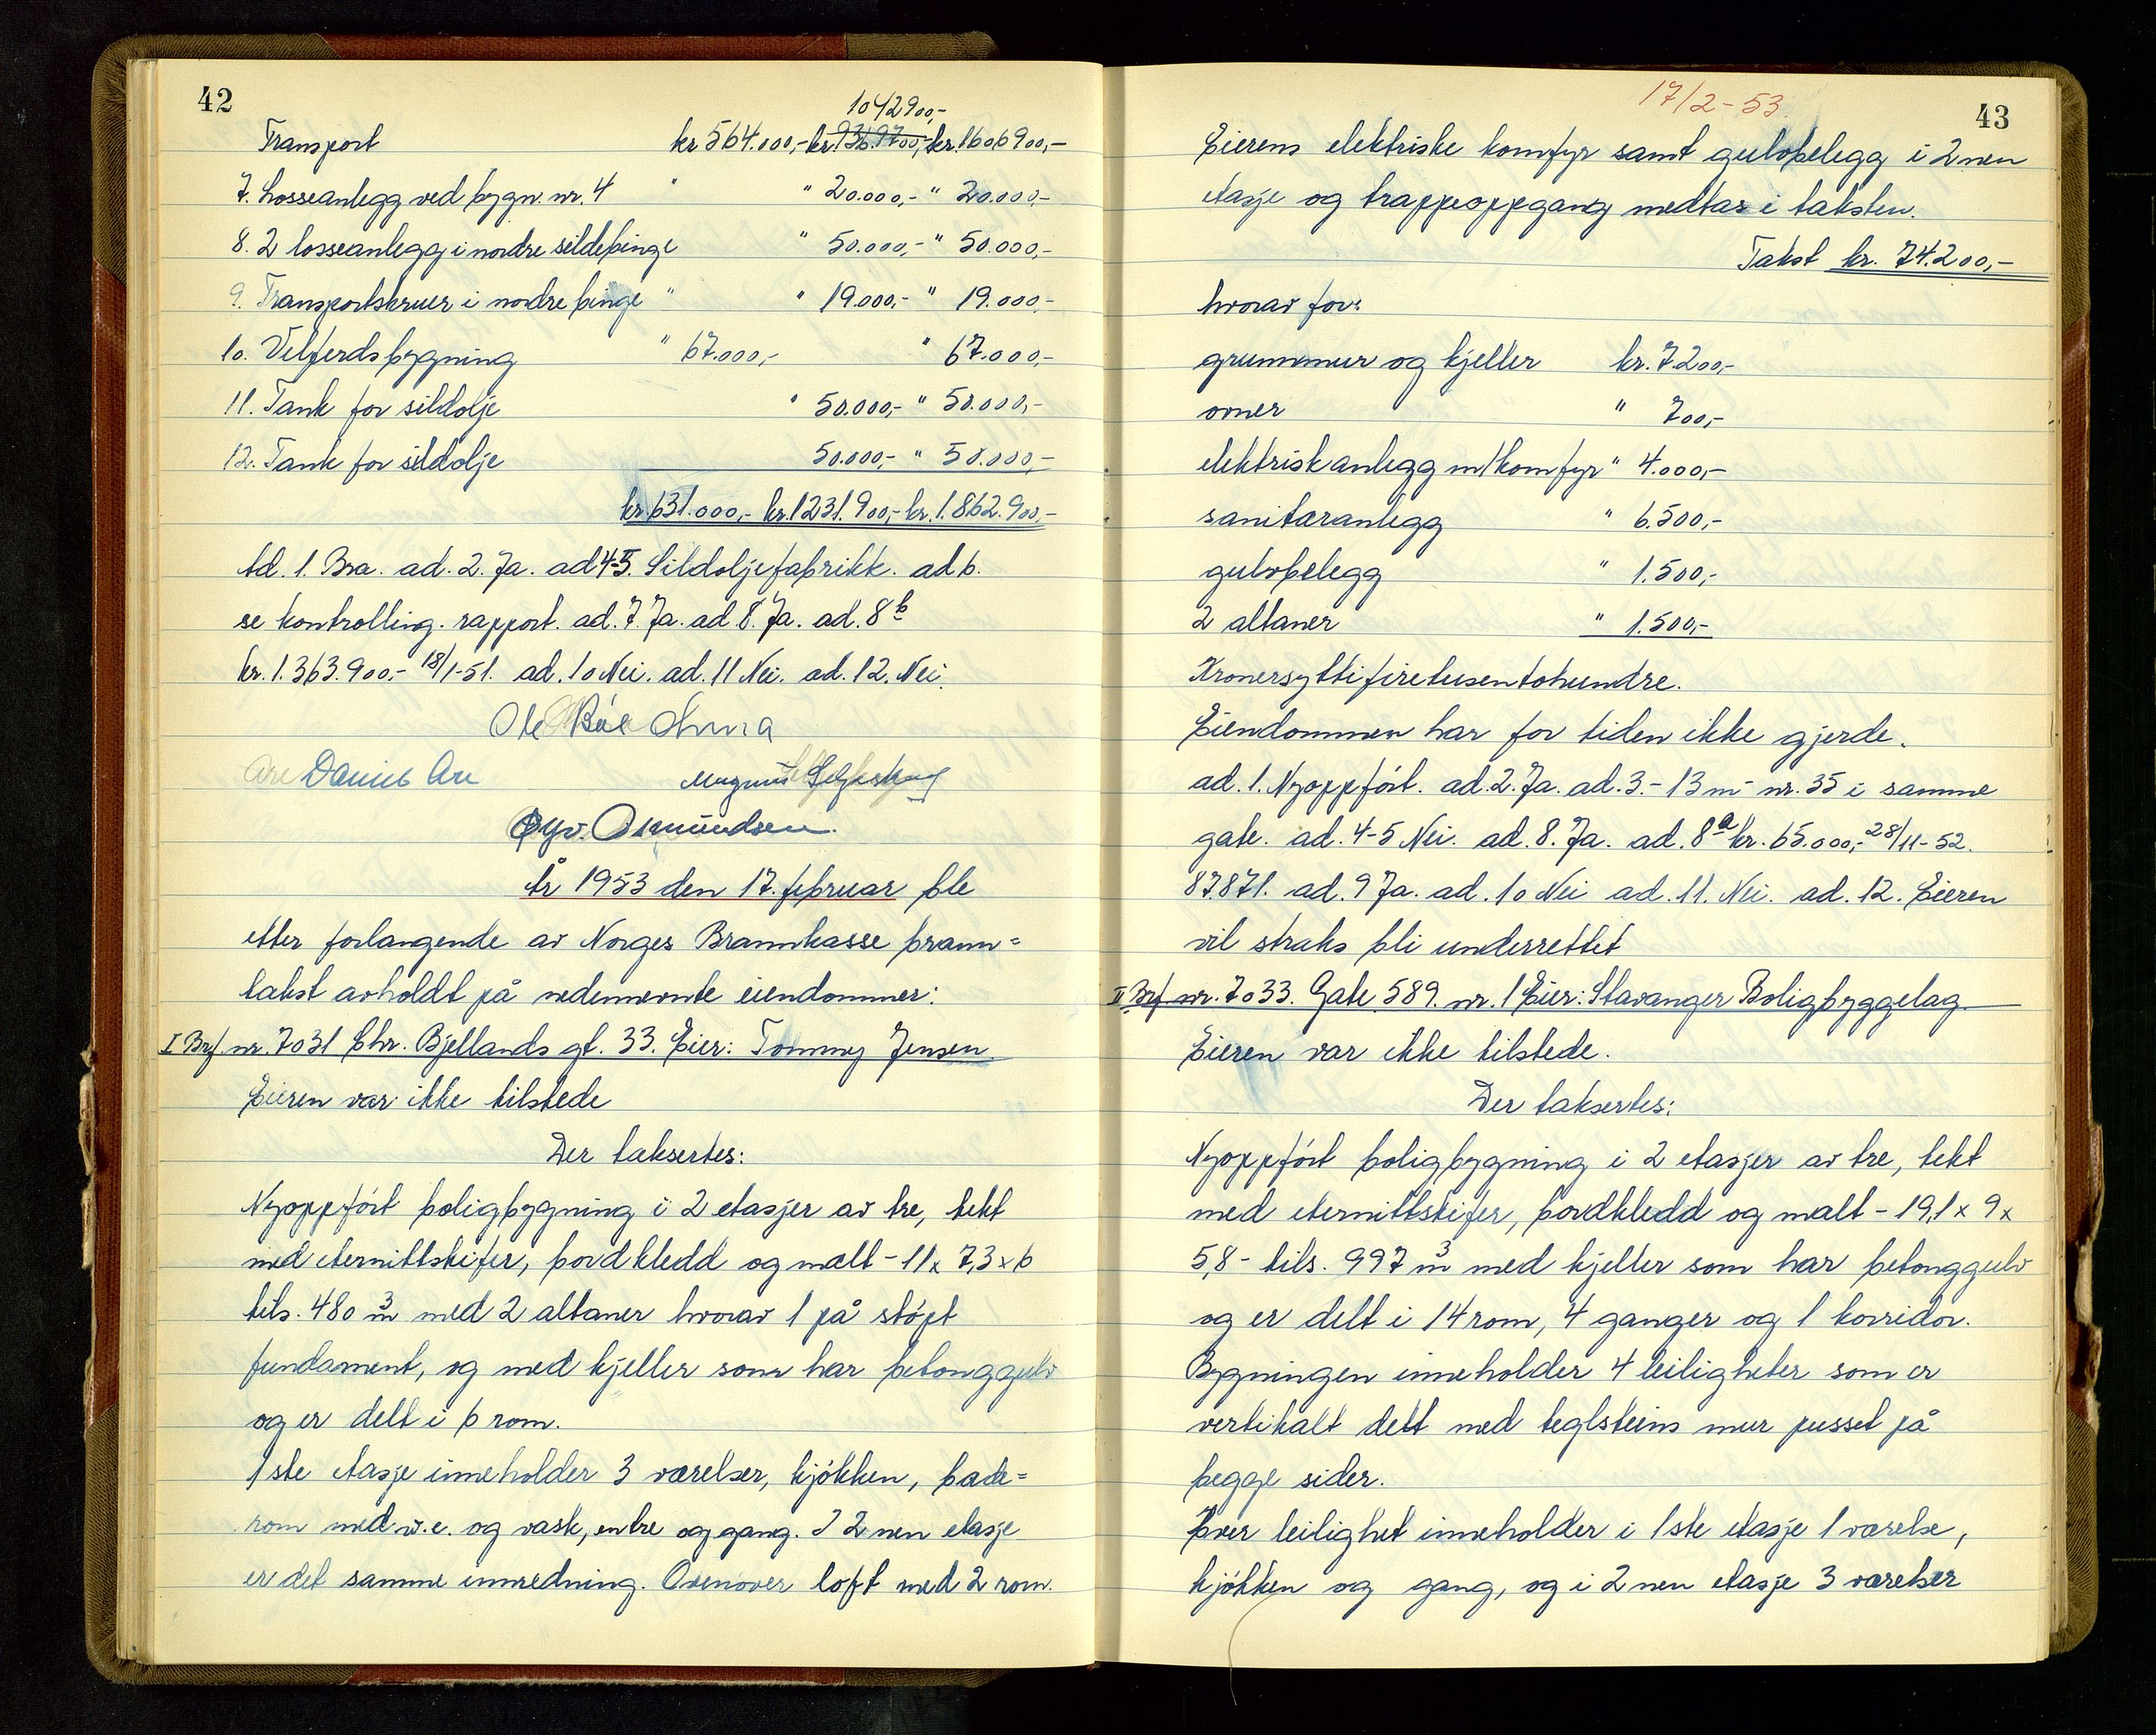 42
1042900,-
Transport kr 564.000,- kr. 936.9700,- kr. 1606900,-
7. Losseanlegg ved bygn. nr. 4 " " 20.000,- " 20.000,-
8. 2 losseanlegg i nordre sildebinge " 50.000,- " 50.000,-
9. Transportskruer i nordre binge " " 19.000,- " 19.000,-
10. Velferdsbygning " 67.000,- " 67.000,-
11. Tank for sildolje " 50.000,- " 50.000,-
12. Tank for sildolje 50.000,- " 50.000,-
kr. 631.000,- kr. 1231.900,- kr. 1.862.900,-
Ad. 1. Bra. ad. 2. Ja. ad 4-5. Sildoljefabrikk. ad 6.
se kontrolling. rapport. ad. 7. Ja. ad. 8. Ja. ad. 8b
kr. 1.363.900.- 18/1-51. ad. 10 Nei. ad. 11 Nei. ad. 12. Nei.
Ole
Daniel Are Magnus
Øyv. Osmundsen.
År 1953 den 17. februar ble
etter forlangende av Norges Brannkasse brann=
takst avholdt på nedennevnte eiendommer:
I Brf. nr. 7031 Chr. Bjellands gt. 33. Eier: Tommy Jensen
Eieren var ikke tilstede
Der taksertes:
Nyoppført boligbygning i 2 etasjer av tre, tekt
med eternittskifer, bordkledd og malt - 11 x 7,3 x 6
tils. 480 m3 med 2 altaner hvorav 1 på støpt
fundament, og med kjeller som har betonggulv
og er delt i 6 rom.
1ste etasje inneholder 3 værelser, kjøkken, bade=
rom med w.c. og vask, entre og gang. I 2nen etasje
er det samme innredning. Ovenover loft med 2 rom.
17/2-53.
43
Eierens elektriske komfyr samt gulvbelegg i 2nen
etasje og trappeoppgang medtas i taksten.
Takst kr. 74.200,-
hvorav for:
grunnmur og kjeller kr. 7.200,-
ovner " 700,-
elektrisk anlegg m/komfyr " 4.000,-
sanitæranlegg " 6.500,-
gulvbelegg " 1.500,-
2 altaner " 1.500,-
Kronersyttifiretusentohundre.
Eiendommen har for tiden ikke gjerde.
ad. 1. Nyoppført. ad. 2. Ja. ad. 3. - 13 m - nr. 35 i samme
gate. ad. 4-5 Nei. ad. 8. Ja. ad. 8a kr. 65.000,- 28/11-52.
87871. ad. 9 Ja. ad. 10 Nei ad. 11. Nei. ad. 12. Eieren
vil straks bli underrettet
II Brf nr. 7033. Gate 589. nr. 1 Eier: Stavanger Boligbyggelag
Eieren var ikke tilstede.
Der taksertes:
Nyoppført boligbygning i 2 etasjer av tre, tekt
med eternittskifer, bordkledd og malt - 19,1 x 9 x
5,8 - tils. 997 m3 med kjeller som har betonggulv
og er delt i 14 rom, 4 ganger og 1 korridor.
Bygningen inneholder 4 leiligheter som er
vertikalt delt med teglsteins mur pusset på
begge sider.
Hver leilighet inneholder i 1ste etasje 1 værelse,
kjøkken og gang, og i 2nen etasje 3 værelser